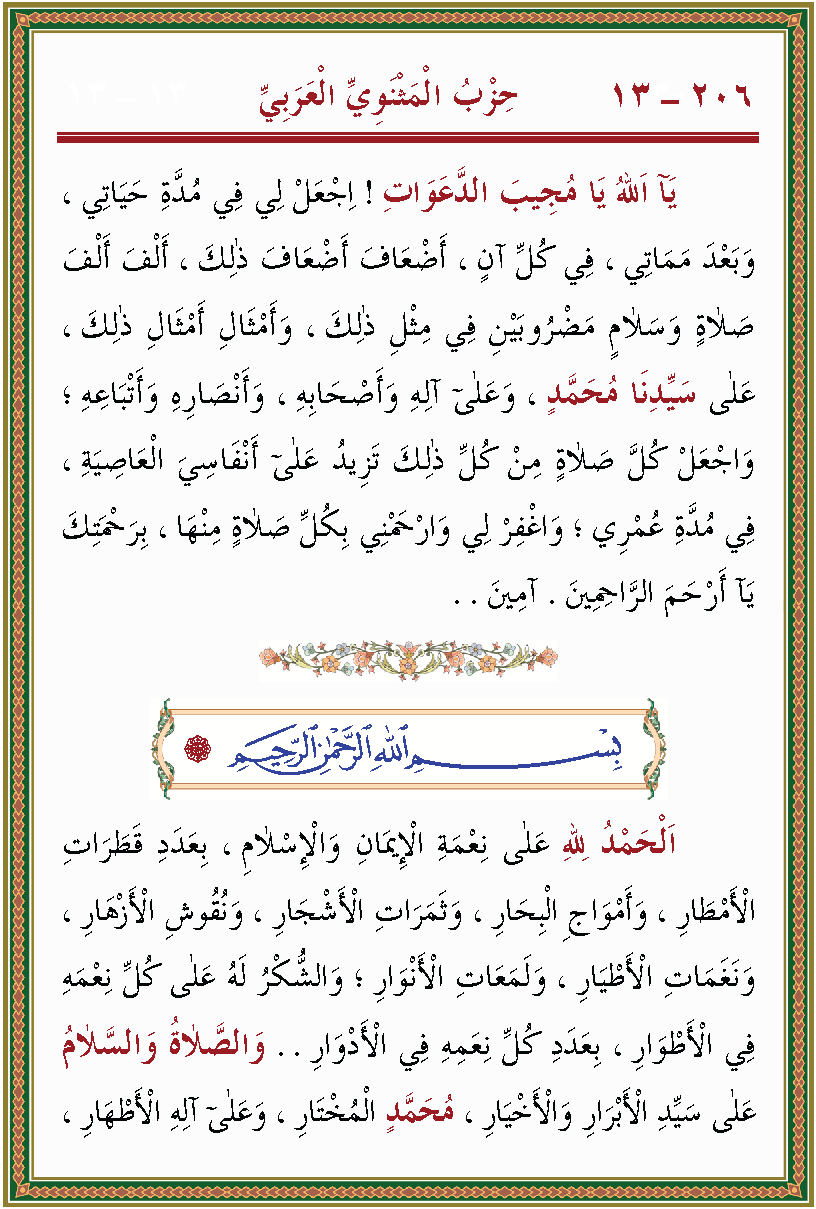 ٢٠٦ – ١٣ حِزْبُ الْمَثْنَوِيِّ الْعَرَبِيِّ
يَآ اَللّٰهُ يَا مُجِيبَ الدَّعَوَاتِ ! اِجْعَلْ لِي فِي مُدَّةِ حَيَاتِي ،
وَبَعْدَ مَمَاتِي ، فِي كُلِّ آنٍ ، أَضْعَافَ أَضْعَافَ ذٰلِكَ ، أَلْفَ أَلْفَ
صَلَاةٍ وَسَلَامٍ مَضْرُوبَيْنِ فِي مِثْلِ ذٰلِكَ ، وَأَمْثَالِ أَمْثَالِ ذٰلِكَ ،
عَلٰى سَيِّدِنَا مُحَمَّدٍ ، وَعَلٰىٓ آلِهِ وَأَصْحَابِهِ ، وَأَنْصَارِهِ وَأَتْبَاعِهِ ؛
وَاجْعَلْ كُلَّ صَلَاةٍ مِنْ كُلِّ ذٰلِكَ تَزِيدُ عَلٰىٓ أَنْفَاسِيَ الْعَاصِيَةِ ،
فِي مُدَّةِ عُمْرِي ؛ وَاغْفِرْ لِي وَارْحَمْنِي بِكُلِّ صَلَاةٍ مِنْهَا ، بِرَحْمَتِكَ
يَآ أَرْحَمَ الرَّاحِمِينَ . آمِينَ . .
بِسْمِ ٱللّٰهِ ٱلرَّحْمٰنِ ٱلرَّحِيمِ
اَلْحَمْدُ لِلّٰهِ عَلٰى نِعْمَةِ الْإِيمَانِ وَالْإِسْلَامِ ، بِعَدَدِ قَطَرَاتِ
الْأَمْطَارِ ، وَأَمْوَاجِ الْبِحَارِ ، وَثَمَرَاتِ الْأَشْجَارِ ، وَنُقُوشِ الْأَزْهَارِ ،
وَنَغَمَاتِ الْأَطْيَارِ ، وَلَمَعَاتِ الْأَنْوَارِ ؛ وَالشُّكْرُ لَهُ عَلٰى كُلِّ نِعْمَهِ
فِي الْأَطْوَارِ ، بِعَدَدِ كُلِّ نِعَمِهِ فِي الْأَدْوَارِ . . وَالصَّلَاةُ وَالسَّلَامُ
عَلٰى سَيِّدِ الْأَبْرَارِ وَالْأَخْيَارِ ، مُحَمَّدٍ الْمُخْتَارِ ، وَعَلٰىٓ آلِهِ الْأَطْهَارِ ،